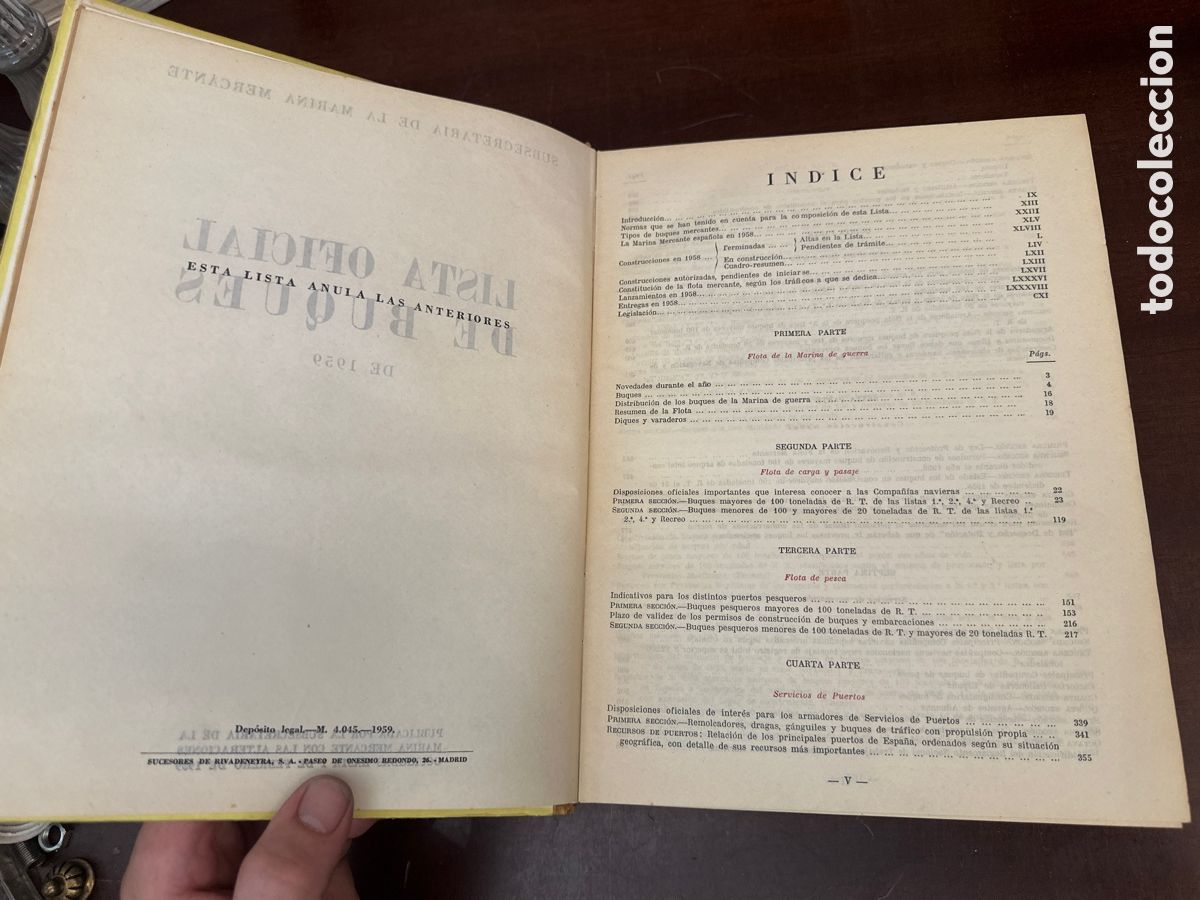 ESTA LISTA ANULA LAS ANTERIORES
Depósito legal.—M. 4.045.—1959.
SUCESORES DE RIVADENEYRA, S. A. - PASEO DE ONESIMO REDONDO, 26. - MADRID
INDICE
Introducción... IX
Normas que se han tenido en cuenta para la composición de esta Lista... XIII
Tipos de buques mercantes... XXIII
La Marina Mercante española en 1958... XLV
Construcciones en 1958 ...
Terminadas ...
Altas en la Lista... XLVIII
Pendientes de trámite... L
En construcción... LIV
Cuadro-resumen... LXII
Construcciones autorizadas, pendientes de iniciarse... LXIII
Constitución de la flota mercante, según los tráficos a que se dedica... LXVII
Lanzamientos en 1958... LXXXVI
Entregas en 1958... LXXXVIII
Legislación... CXI
PRIMERA PARTE
Flota de la Marina de guerra
Págs.
Novedades durante el año ... 3
Buques ... 4
Distribución de los buques de la Marina de guerra ... 16
Resumen de la Flota ... 18
Diques y varaderos ... 19
SEGUNDA PARTE
Flota de carga y pasaje
Disposiciones oficiales importantes que interesa conocer a las Compañías navieras ... 22
PRIMERA SECCIÓN.—Buques mayores de 100 toneladas de R. T. de las listas 1.ª, 2.ª, 4.ª y Recreo .. 23
SEGUNDA SECCIÓN.—Buques menores de 100 y mayores de 20 toneladas de R. T. de las listas 1.ª
2.ª, 4.ª y Recreo ... 119
TERCERA PARTE
Flota de pesca
Indicativos para los distintos puertos pesqueros ... 151
PRIMERA SECCIÓN.—Buques pesqueros mayores de 100 toneladas de R. T. ... 153
Plazo de validez de los permisos de construcción de buques y embarcaciones ... 216
SEGUNDA SECCIÓN.—Buques pesqueros menores de 100 toneladas de R. T. y mayores de 20 toneladas R. T. 217
CUARTA PARTE
Servicios de Puertos
Disposiciones oficiales de interés para los armadores de Servicios de Puertos ... 339
PRIMERA SECCIÓN.—Remolcadores, dragas, gánguiles y buques de tráfico con propulsión propia ... 341
RECURSOS DE PUERTOS: Relación de los principales puertos de España, ordenados según su situación
geográfica, con detalle de sus recursos más importantes ... 355
— V —
todocoleccion